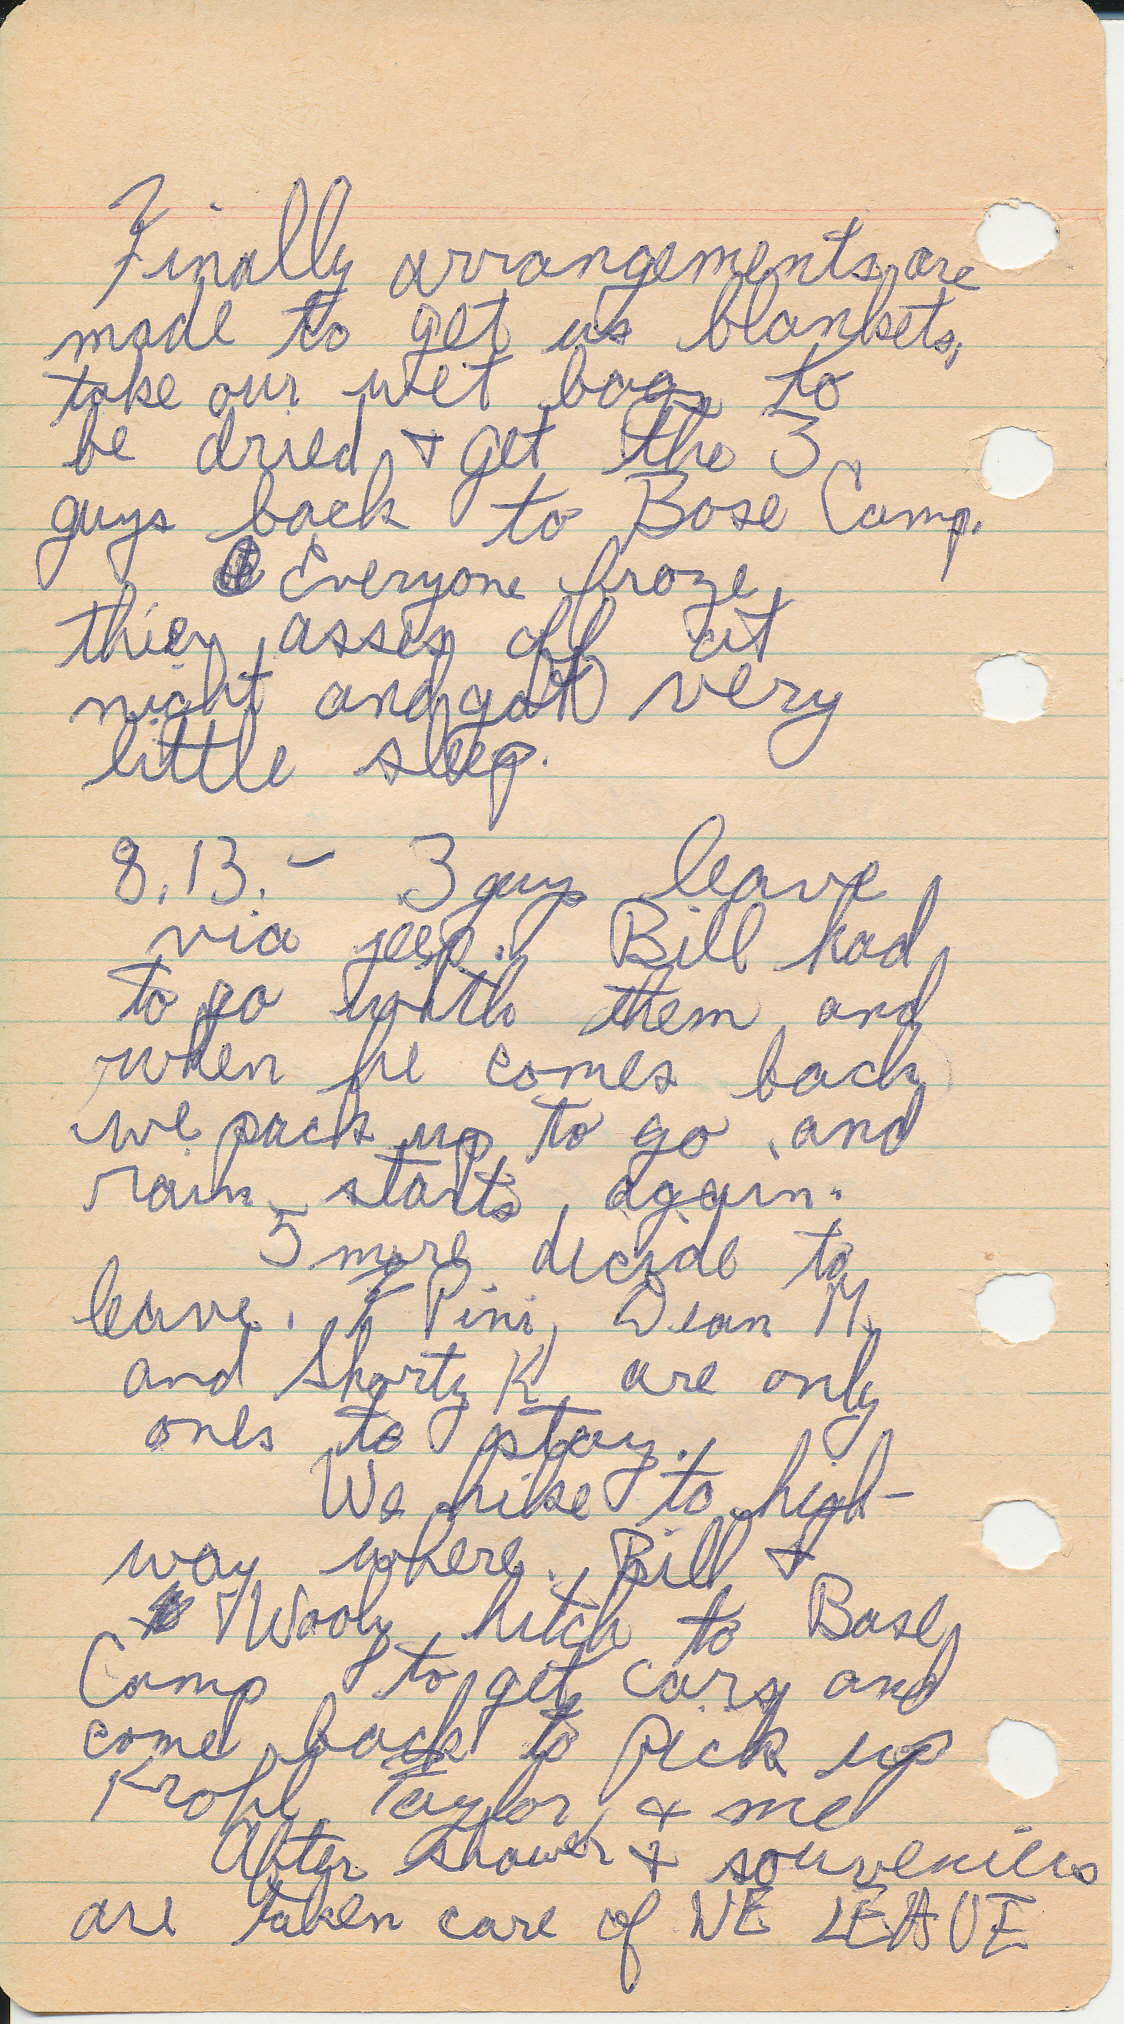 Finally arrangements are
made to get us blankets,
take our wet bags to
be dried + get the 3
guys back to Base Camp.
Everyone froze
thier asses off at
night and got very
little sleep.
8.13. - 3 guys leave
via jeep. Bill had
to go with them and
when he comes back
we pack up to go and
rain starts again.
5 more decide to
leave. F Pini, Dean M.
and Shorty K are only
ones to stay.
We hike to high-
way where Bill +
Wooly hitch to Base
Camp to get cars and
come back to pick up
Krohl Taylor & me
After shower + souveniers
are taken care of WE LEAVE